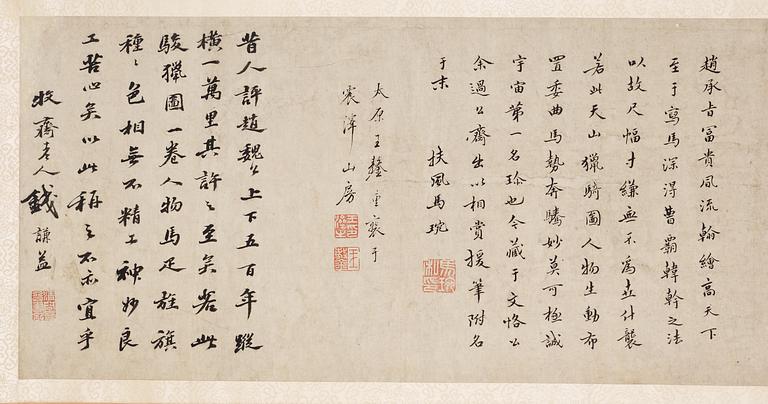 趙承旨富貴風流翰繪高天下
至于寫馬深得曹霸韓幹之法
以故尺幅寸縑無不為世什襲
若此天山獵騎圖人物生動布
置委曲馬勢奔騰妙莫可極誠
宇宙第一名珍也今藏于文恪公
余過公齋出以相賞援筆附名
于末 扶風馬琬
太原王鏊重裝于
震澤山房
昔人評趙魏公上下五百年縱
橫一萬里其許之至矣若此
駿獵圖一卷人物馬足旌旗
種種色相無不精工神妙良
工苦心矣以此稱之不亦宜乎
牧齋老人錢謙益